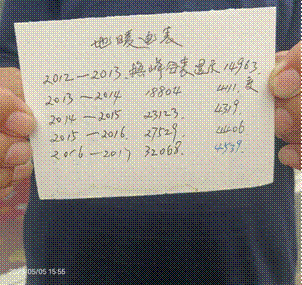 地暖电表
2012—2013 换峰谷表显示 14963.
2013—2014 18804 4111.度
2014—2015 23123. 4319.
2015—2016. 27529. 4406
2016—2017 32068. 4539.
2020/05/05 15:55